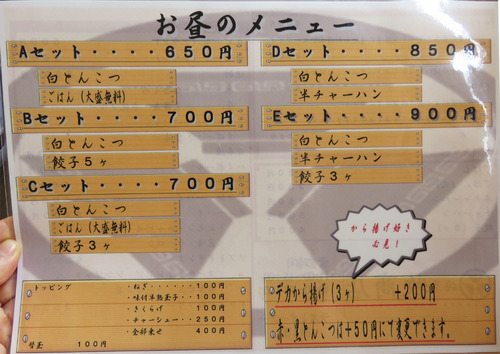 お昼のメニュー
Aセット・・・・650円
白とんこつ
ごはん（大盛無料）
Bセット・・・・700円
白とんこつ
餃子５ヶ
Cセット・・・・700円
白とんこつ
ごはん（大盛無料）
餃子３ヶ
Dセット・・・・850円
白とんこつ
半チャーハン
Eセット・・・・900円
白とんこつ
半チャーハン
餃子３ヶ
から揚げ好き
必見！
トッピング
・ねぎ・・・・・・100円
・味付半熟玉子・・100円
・きくらげ　　　100円
・チャーシュー・・250円
・全部乗せ　　　400円
替玉　　100円
デカから揚げ（３ヶ）　　＋200円
赤・黒とんこつは＋50円にて変更できます。